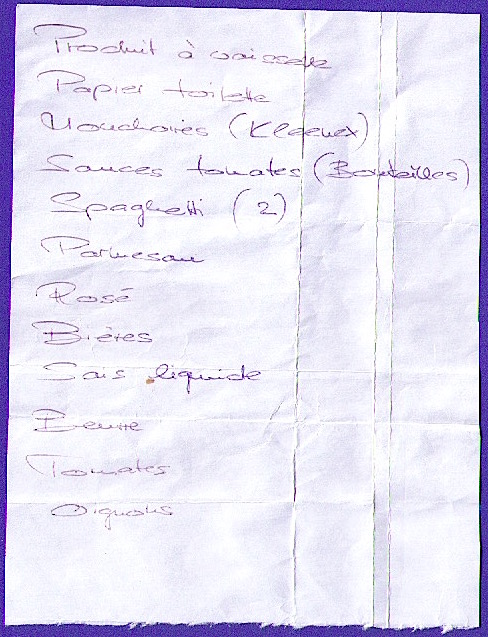 Produit à vaisselle
Papier toilette
Mouchoires (Kleenex)
Sauces tomates (Bouteilles)
Spaghetti (2)
Parmesan
Rosé
Bières
liquide
Beurre
Tomates
Oignons